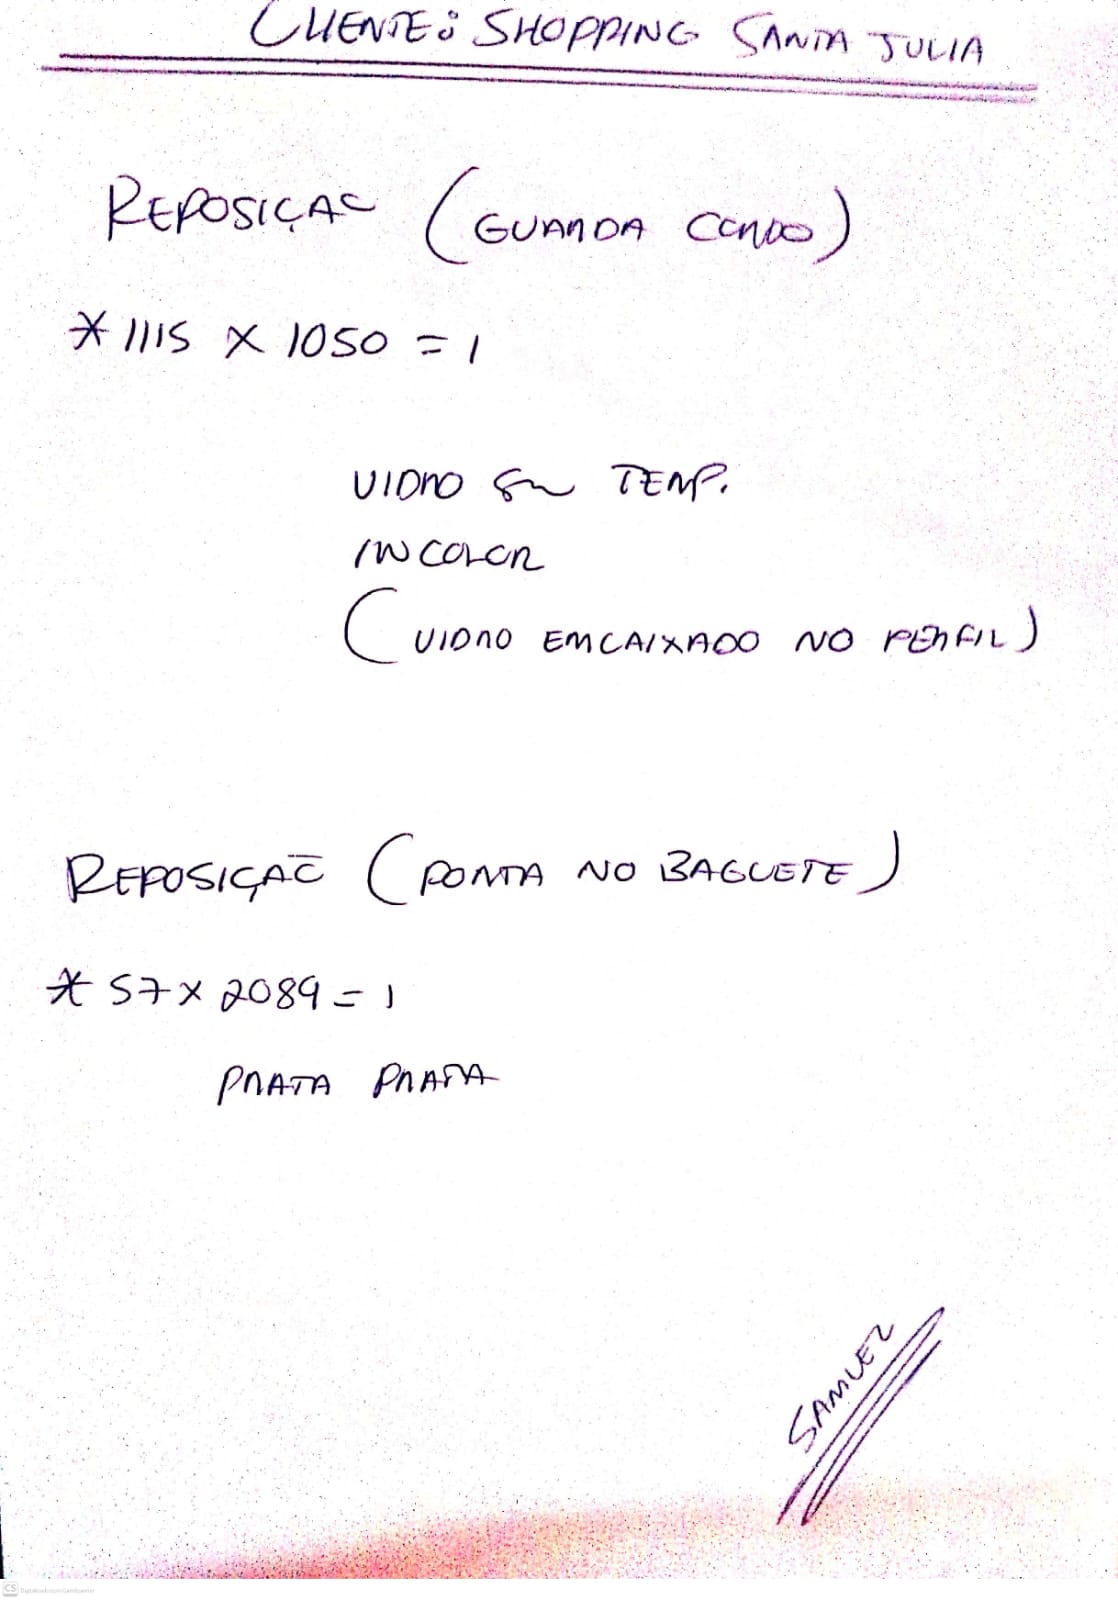 CLIENTE: SHOPPING SANTA JULIA
REPOSIÇAO (GUARDA CORPO)
* 1115 X 1050 = 1
VIDRO TEMP.
INCOLOR
(VIDRO EMCAIXADO NO PERFIL)
REPOSIÇÃO (PORTA NO BAGUETE)
* 57 X 2089 = 1
PRATA PRATA
SAMUEL
CS Digitalizado com CamScanner